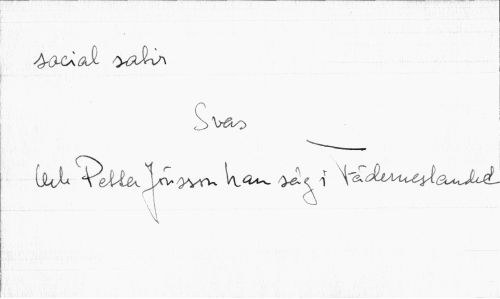 social satir
Svar
Och Petter Jönsson han såg i Fäderneslandet